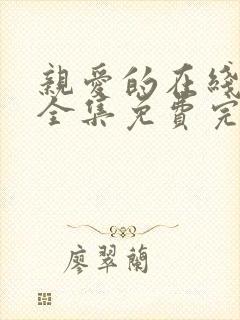 親愛的在綫
全集免費完
廖翠蘭